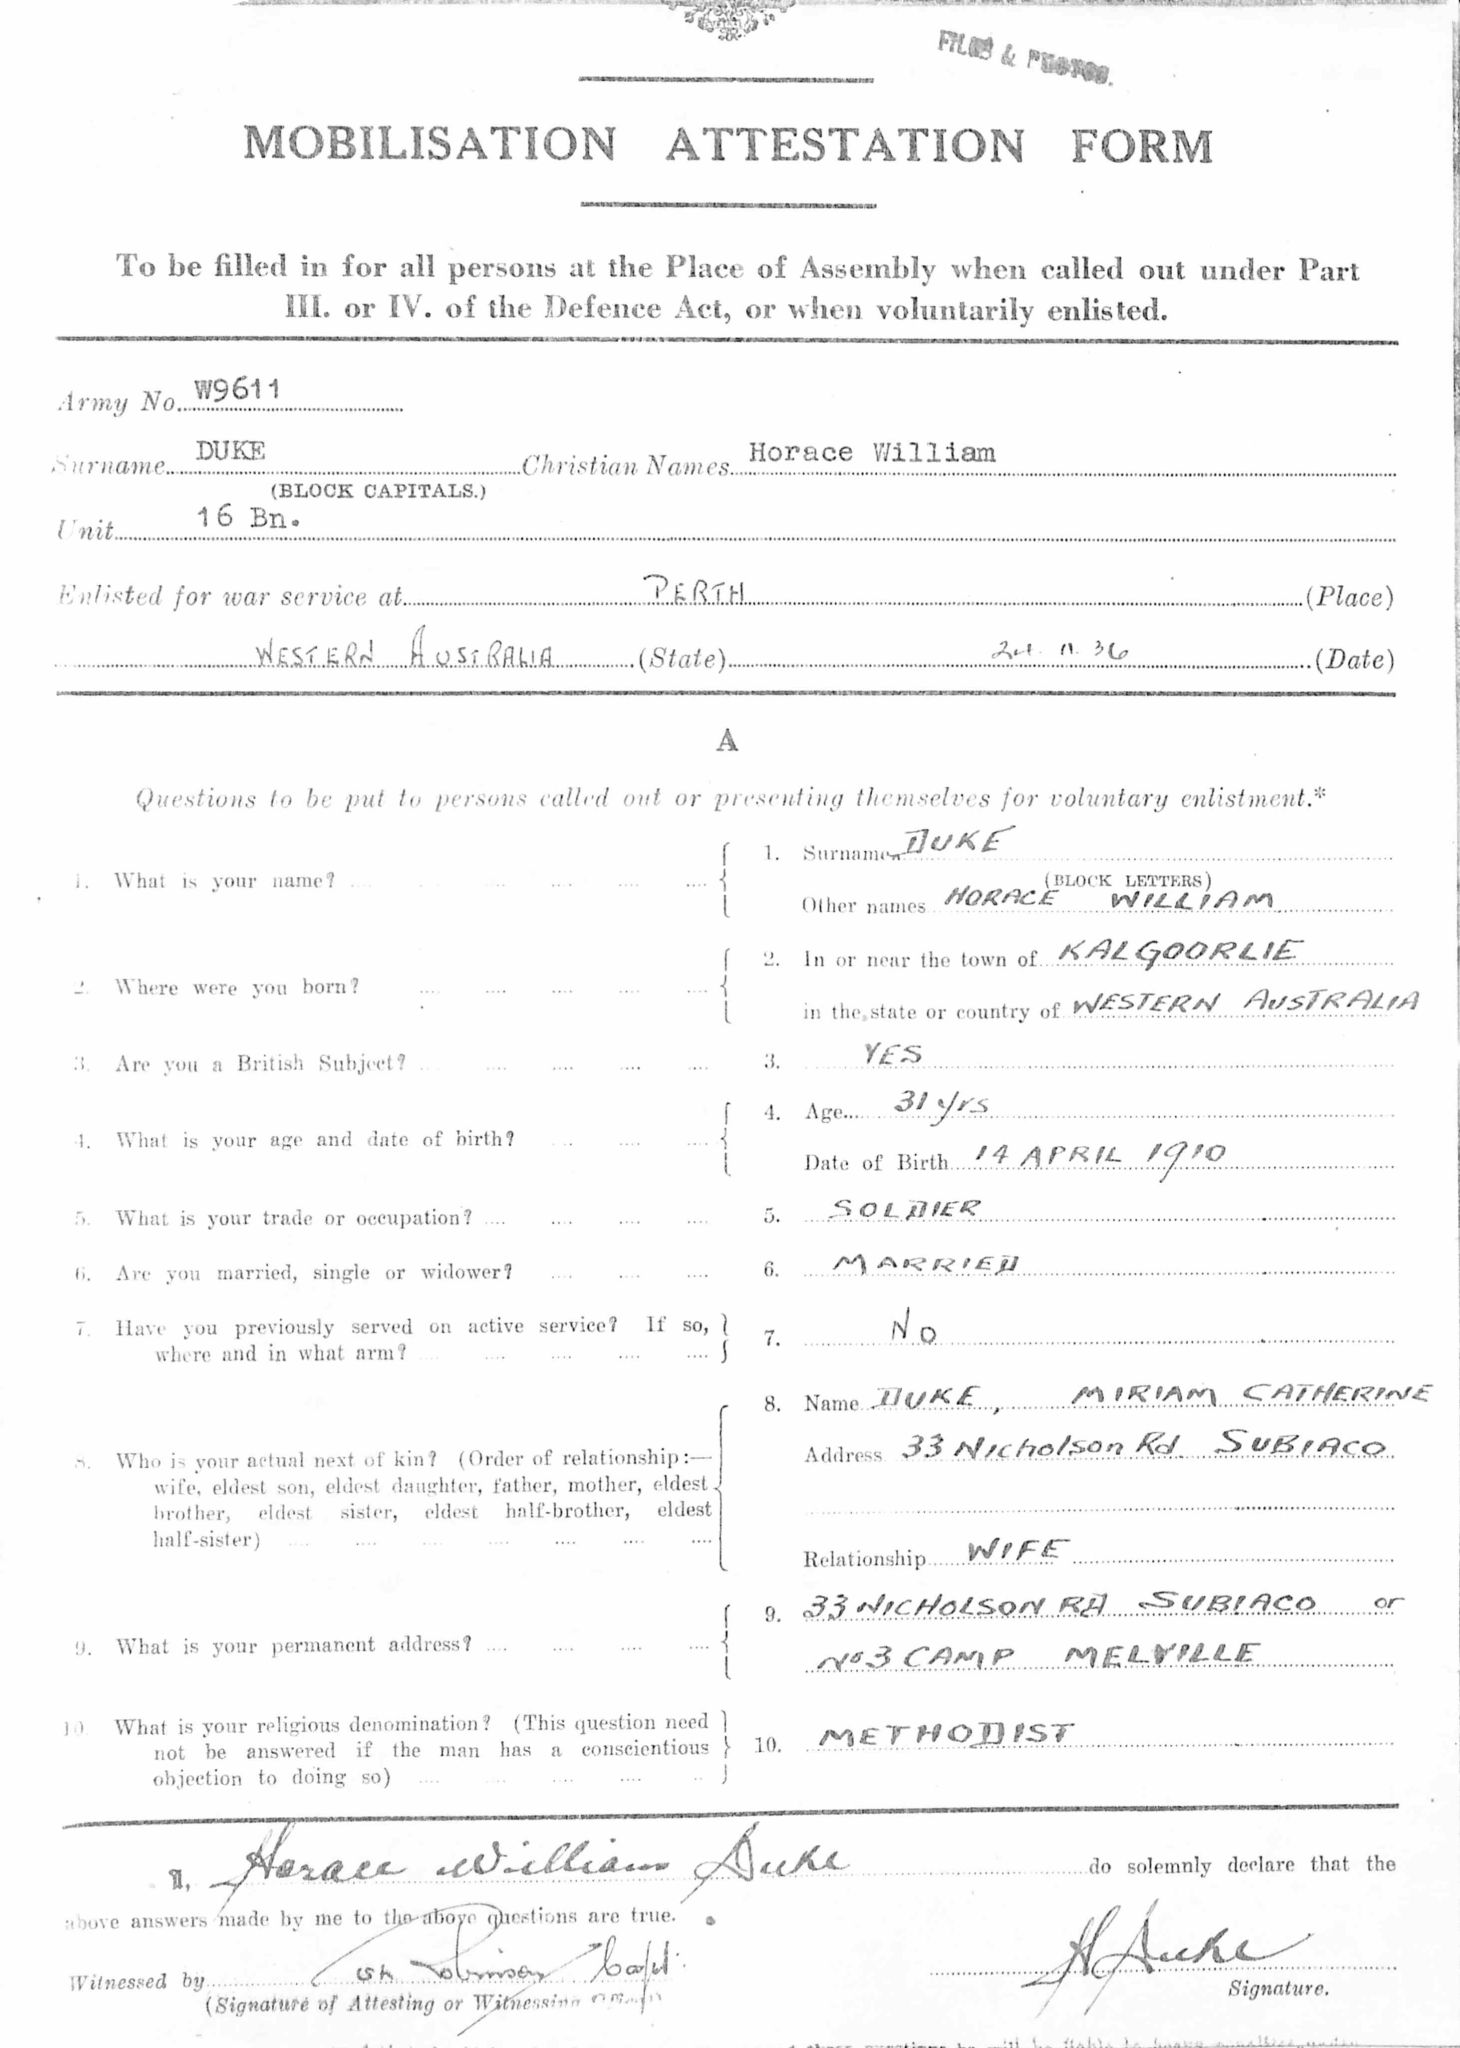 FILES & PHOTOS.
MOBILISATION ATTESTATION FORM
To be filled in for all persons at the Place of Assembly when called out under Part
III. or IV. of the Defence Act, or when voluntarily enlisted.
Army No. W9611
Surname DUKE Christian Names Horace William
(BLOCK CAPITALS.)
Unit 16 Bn.
Enlisted for war service at PERTH (Place)
WESTERN AUSTRALIA (State) 24.11.36 (Date)
A
Questions to be put to persons called out or presenting themselves for voluntary enlistment.*
1. What is your name? 1. Surname DUKE
(BLOCK LETTERS)
Other names HORACE WILLIAM
2. Where were you born? 2. In or near the town of KALGOORLIE
in the state or country of WESTERN AUSTRALIA
3. Are you a British Subject? 3. YES
4. What is your age and date of birth? 4. Age 31 yrs
Date of Birth 14 APRIL 1910
5. What is your trade or occupation? 5. SOLDIER
6. Are you married, single or widower? 6. MARRIED
7. Have you previously served on active service? If so,
where and in what arm? 7. NO
8. Who is your actual next of kin? (Order of relationship:—
wife, eldest son, eldest daughter, father, mother, eldest
brother, eldest sister, eldest half-brother, eldest
half-sister)
8. Name DUKE, MIRIAM CATHERINE
Address 33 Nicholson Rd SUBIACO
Relationship WIFE
9. What is your permanent address? 9. 33 NICHOLSON RD SUBIACO or
No 3 CAMP MELVILLE
10. What is your religious denomination? (This question need
not be answered if the man has a conscientious
objection to doing so)
10. METHODIST
I, Horace William Duke do solemnly declare that the
above answers made by me to the above questions are true.
Witnessed by Robinson Capt. H Duke
(Signature of Attesting or Witnessing Signature.